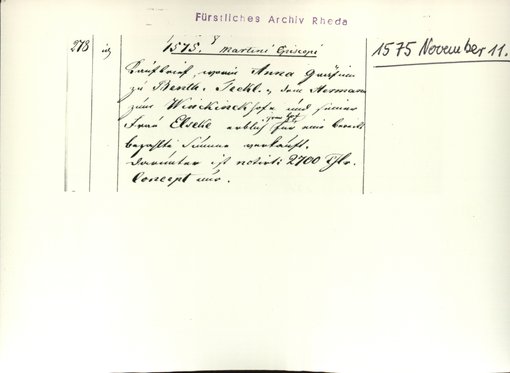 Fürstliches Archiv Rheda
278
1575. 8 Martini Episcopi
1575 November 11.
Kaufbrief, worin Anna Gräfin
zu Benth. Teckl. dem Herman
zum Winckinckhofe und seiner
Frau Elseke erblich für eine bereits
bezahlte Summe verkauft.
Darunter ist notirt: 2700 Thlr.
Concept nur.